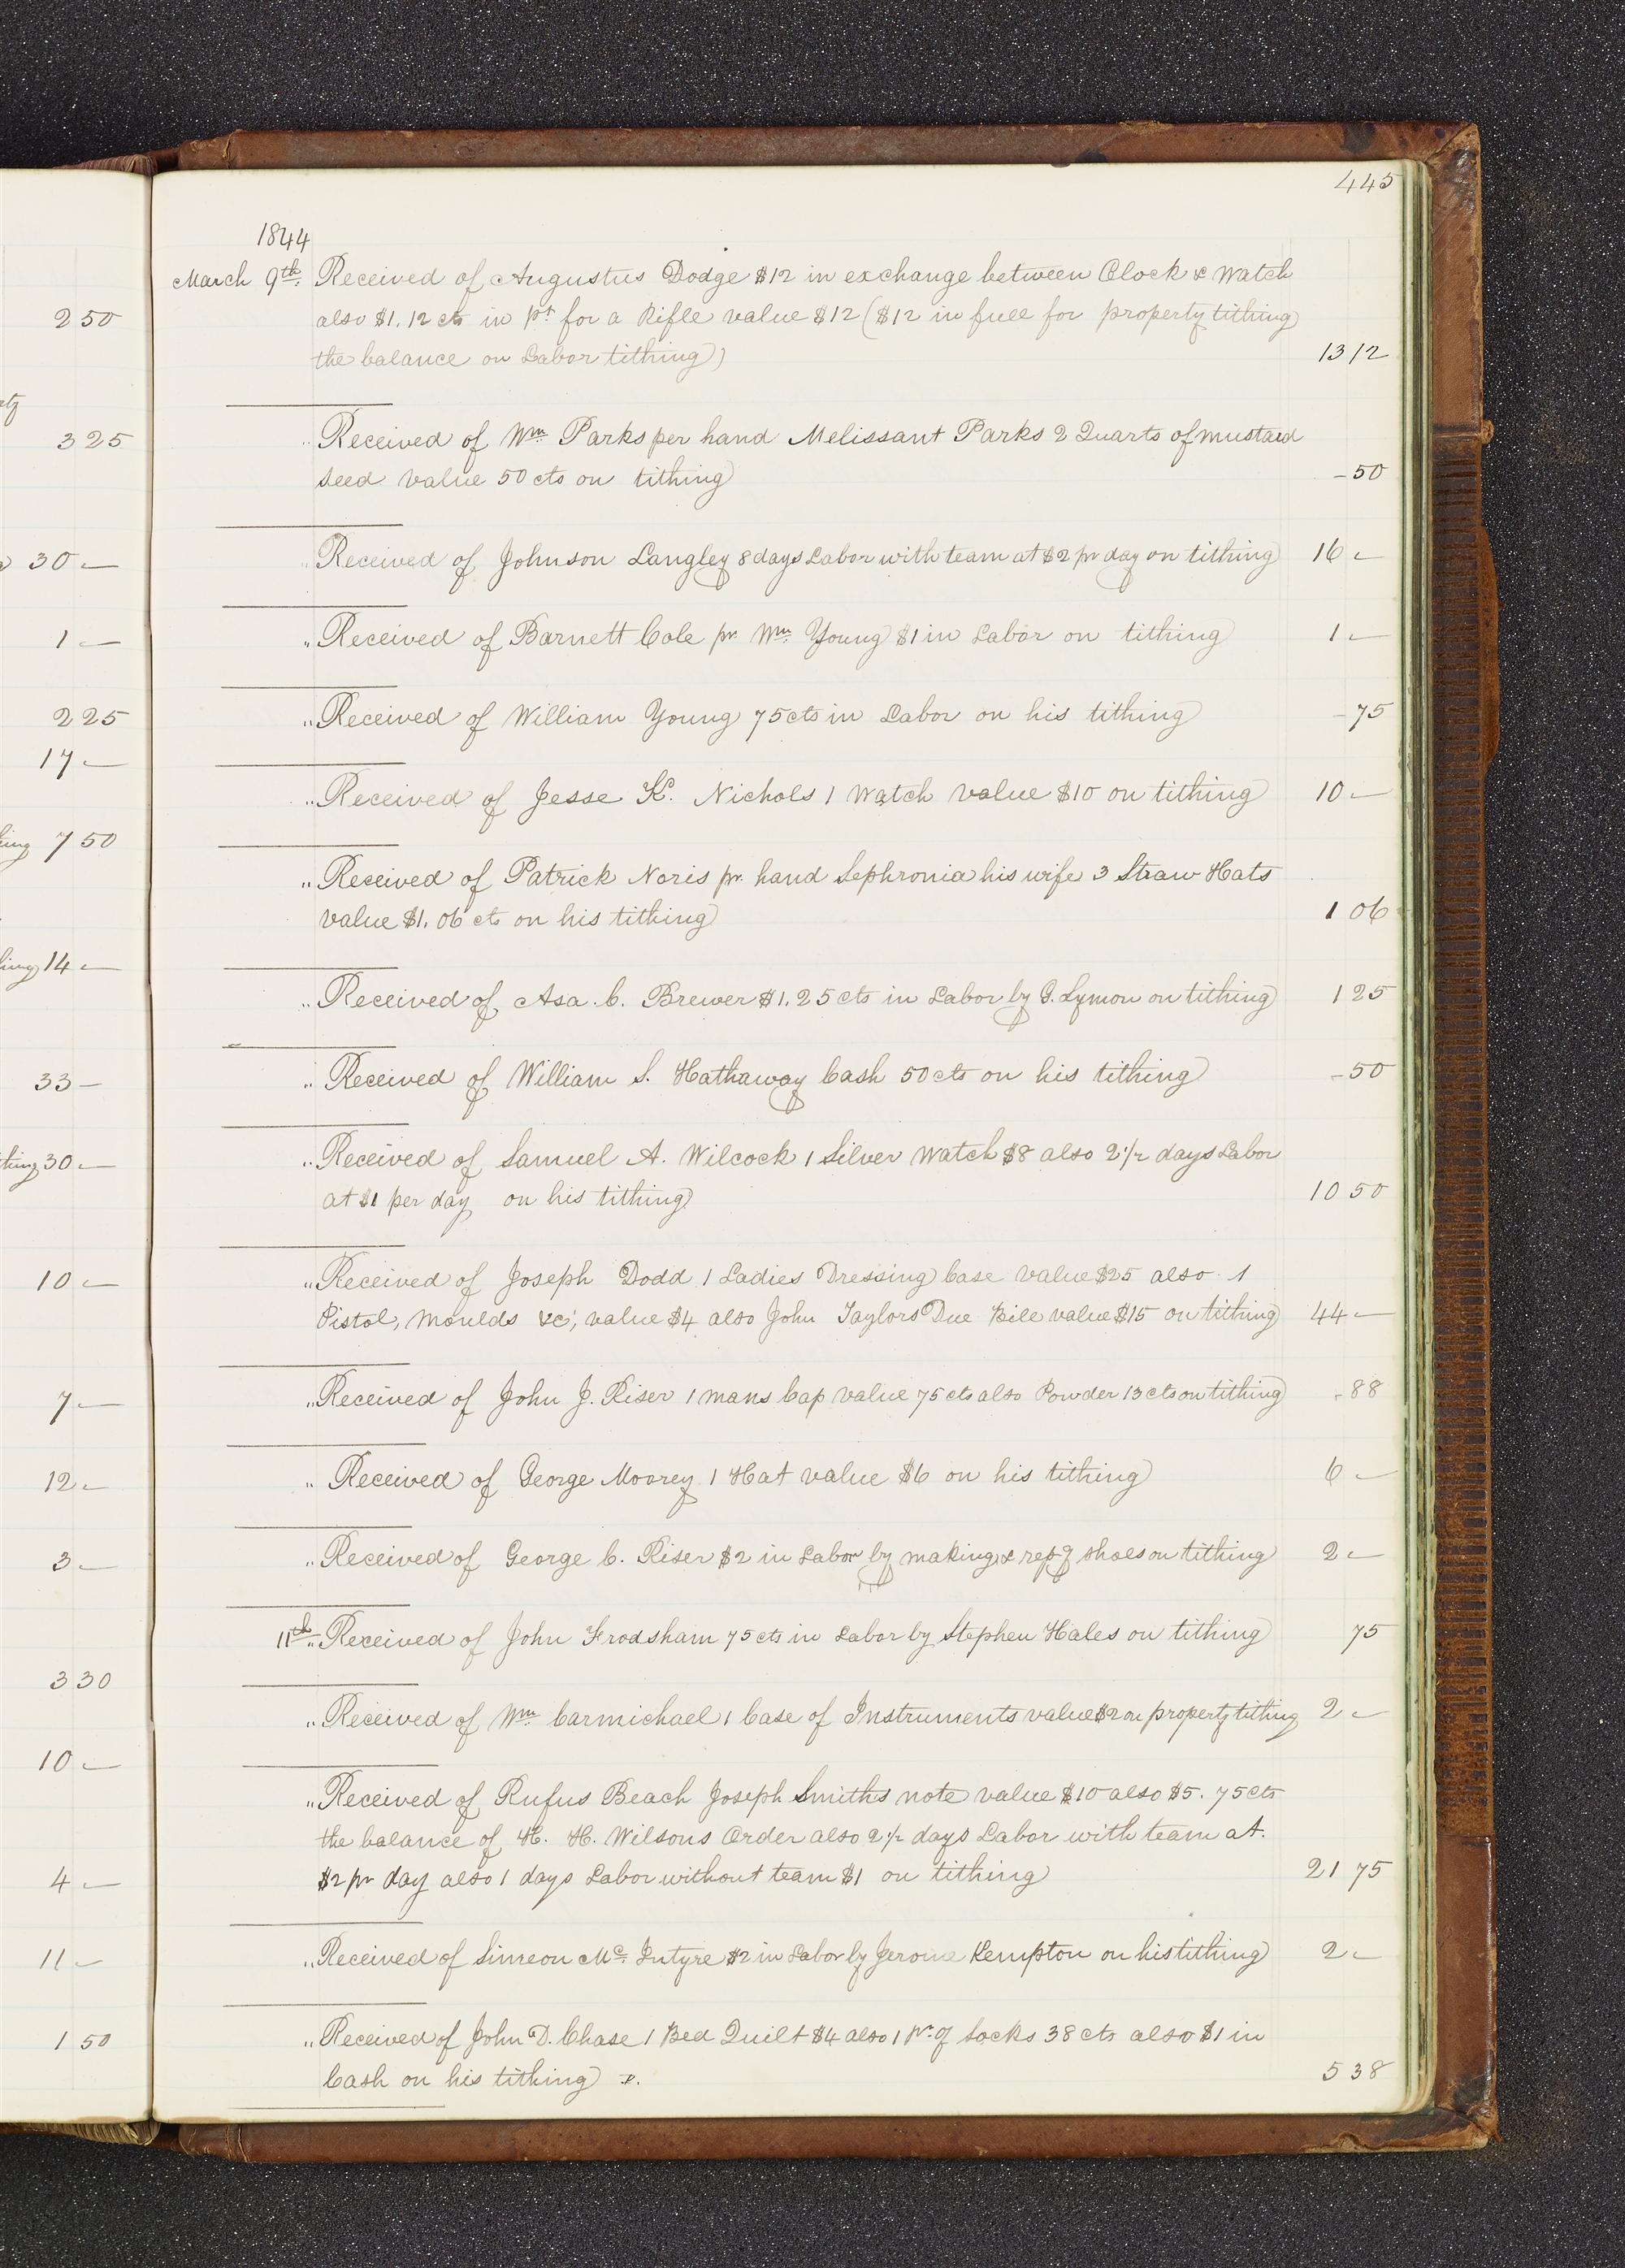 445
1844
March 9th Received of Augustus Dodge $12 in exchange between Clock & Watch
also $1.12 cts in pt for a Rifle value $12 ($12 in full for property tithing
the balance on Labor tithing) 13 12
" Received of Wm Parks per hand Melissant Parks 2 Quarts of mustard
seed value 50 cts on tithing - 50
" Received of Johnson Langley 8 days Labor with team at $2 pr day on tithing 16 -
" Received of Barnett Cole pr Wm Young $1 in Labor on tithing 1 -
" Received of William Young 75 cts in Labor on his tithing - 75
" Received of Jesse K. Nichols 1 Watch value $10 on tithing 10 -
" Received of Patrick Noris pr hand Sephronia his wife 3 Straw Hats
value $1.06 cts on his tithing 1 06
" Received of Asa C. Brewer $1.25 cts in Labor by G. Lymon on tithing 1 25
" Received of William S. Hathaway Cash 50 cts on his tithing - 50
" Received of Samuel A. Wilcock 1 Silver Watch $8 also 2 1/2 days Labor
at $1 per day on his tithing 10 50
" Received of Joseph Dodd 1 Ladies Dressing Case value $25 also 1
Pistol, Moulds &c; value $4 also John Taylors Due Bill value $15 on tithing 44 -
" Received of John J. Riser 1 mans Cap value 75 cts also Powder 13 cts on tithing - 88
" Received of George Moorey 1 Hat value $6 on his tithing 6 -
" Received of George C. Riser $2 in Labor by making & repg shoes on tithing 2 -
11th " Received of John Frodsham 75 cts in Labor by Stephen Hales on tithing 75
" Received of Wm Carmichael 1 Case of Instruments value $2 on property tithing 2 -
" Received of Rufus Beach Joseph Smiths note value $10 also $5.75 cts
the balance of H. H. Wilsons Order also 2 1/2 days Labor with team at
$2 pr day also 1 days Labor without team $1 on tithing 21 75
" Received of Simeon Mc Intyre $2 in Labor by Jerome Kempton on his tithing 2 -
" Received of John D. Chase 1 Bed Quilt $4 also 1 pr of Socks 38 cts also $1 in
Cash on his tithing 5 38
2 50
3 25
30 -
1 -
2 25
17 -
7 50
14 -
33 -
30 -
10 -
7 -
12 -
3 -
3 30
10 -
4 -
11 -
1 50